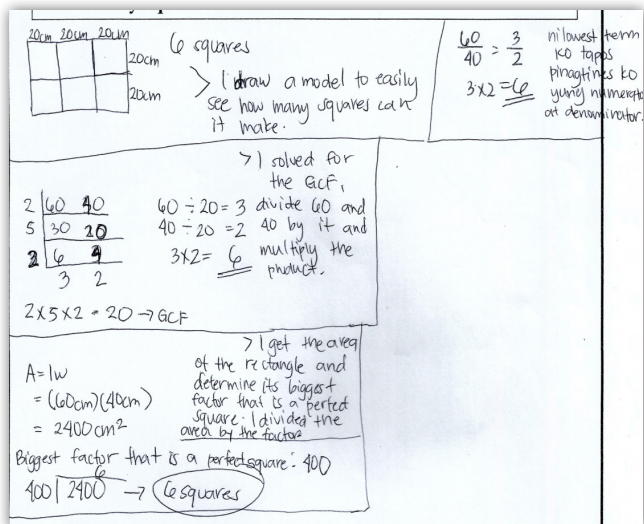 20cm 20cm 20cm
20cm
20cm
6 squares
> I draw a model to easily
see how many squares can
it make.
60/40 = 3/2
3x2 = 6
ni lowest term
ko tapos
pinagtimes ko
yung numerato
at denominator.
> I solved for
the GCF,
divide 60 and
40 by it and
multiply the
product.
2 | 60 40
5 | 30 20
2 | 6 4
3 2
60 ÷ 20 = 3
40 ÷ 20 = 2
3x2 = 6
2 x 5 x 2 = 20 → GCF
> I get the area
of the rectangle and
determine its biggest
factor that is a perfect
square. I divided the
area by the factor.
A = lw
= (60cm)(40cm)
= 2400 cm²
Biggest factor that is a perfect square: 400
6
400 | 2400 → 6 squares